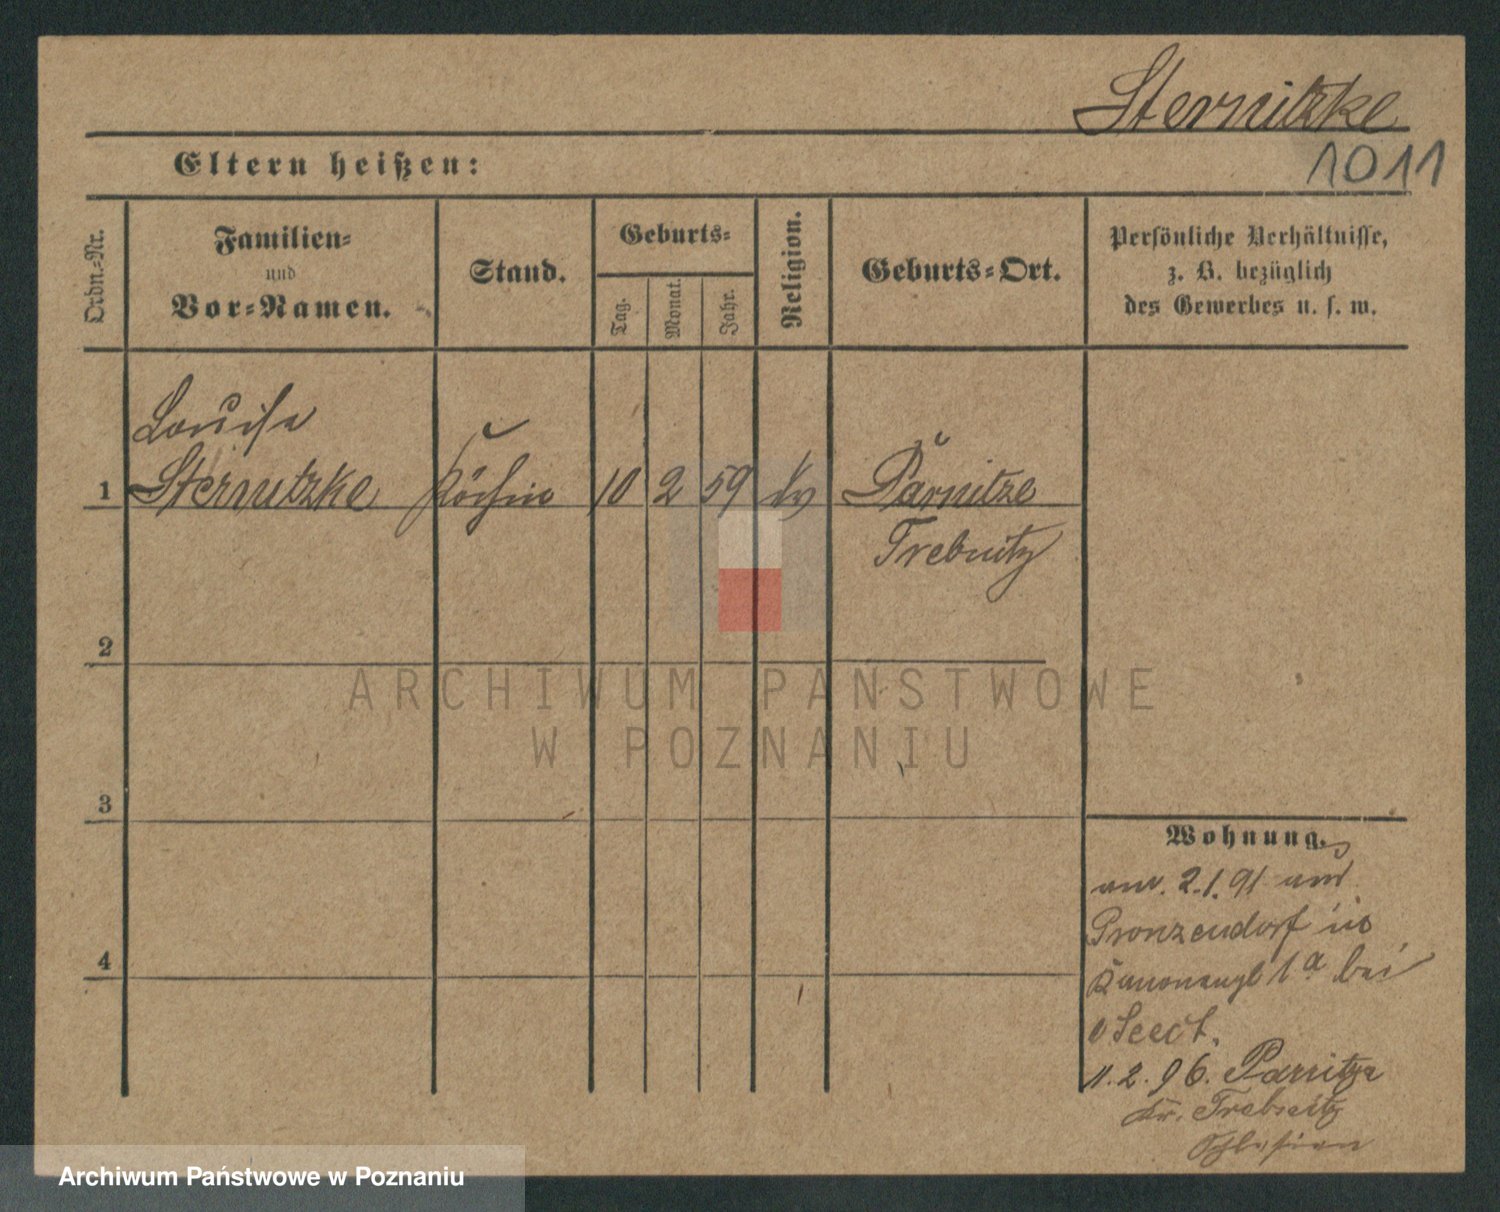 Sternitzke
1011
Eltern heißen:
Ordn.-Nr.
Familien-
und
Vor-Namen.
Stand.
Geburts-
Tag.
Monat.
Jahr.
Religion.
Geburts-Ort.
Persönliche Verhältnisse,
z. B. bezüglich
des Gewerbes u. s. w.
Louise
1 Sternitzke Köchin 10 2 59 Ev Parnitze
Trebnitz
2
3
4
ARCHIWUM PAŃSTWOWE
W POZNANIU
Wohnung.
2.1.91 aus
in
1a bei
11.2.96. Parnitze
Kr. Trebnitz
Schlesien
Archiwum Państwowe w Poznaniu